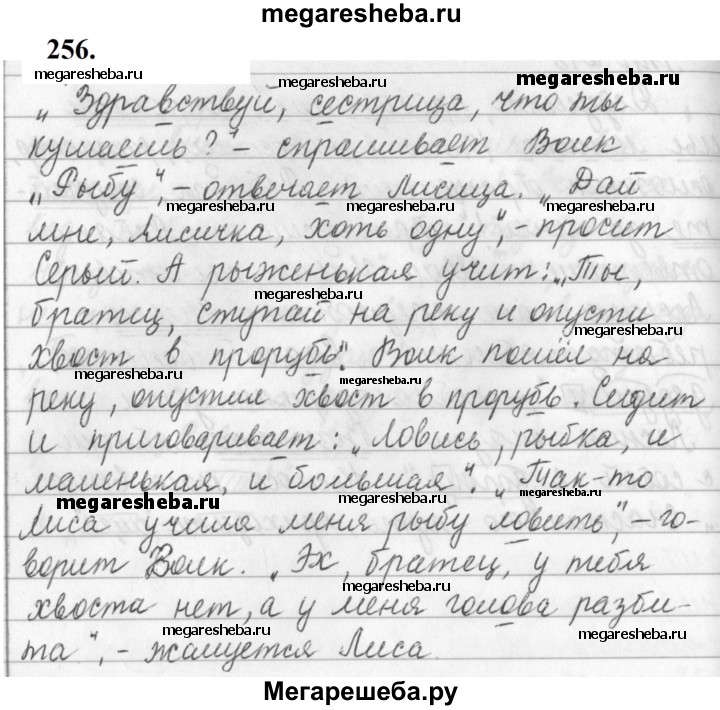 megaresheba.ru
256.
megaresheba.ru
megaresheba.ru
megaresheba.ru
„Здравствуй, сестрица, что ты
кушаешь?" – спрашивает Волк
megaresheba.ru
„Рыбу", – отвечает Лисица. „Дай
megaresheba.ru
megaresheba.ru
megaresheba.ru
мне, Лисичка, хоть одну", – просит
Серый. А рыженькая учит: „Ты,
megaresheba.ru
братец, ступай на реку и опусти
хвост в прорубь". Волк пошёл на
megaresheba.ru
megaresheba.ru
реку, опустил хвост в прорубь. Сидит
и приговаривает: „Ловись, рыбка, и
megaresheba.ru
маленькая, и большая". „Так-то
megaresheba.ru
megaresheba.ru
megaresheba.ru
Лиса учила меня рыбу ловить", – го-
ворит Волк. „Эх, братец, у тебя
megaresheba.ru
хвоста нет, а у меня голова разби-
megaresheba.ru
megaresheba.ru
та", – жалуется Лиса.
Мегарешеба.ру